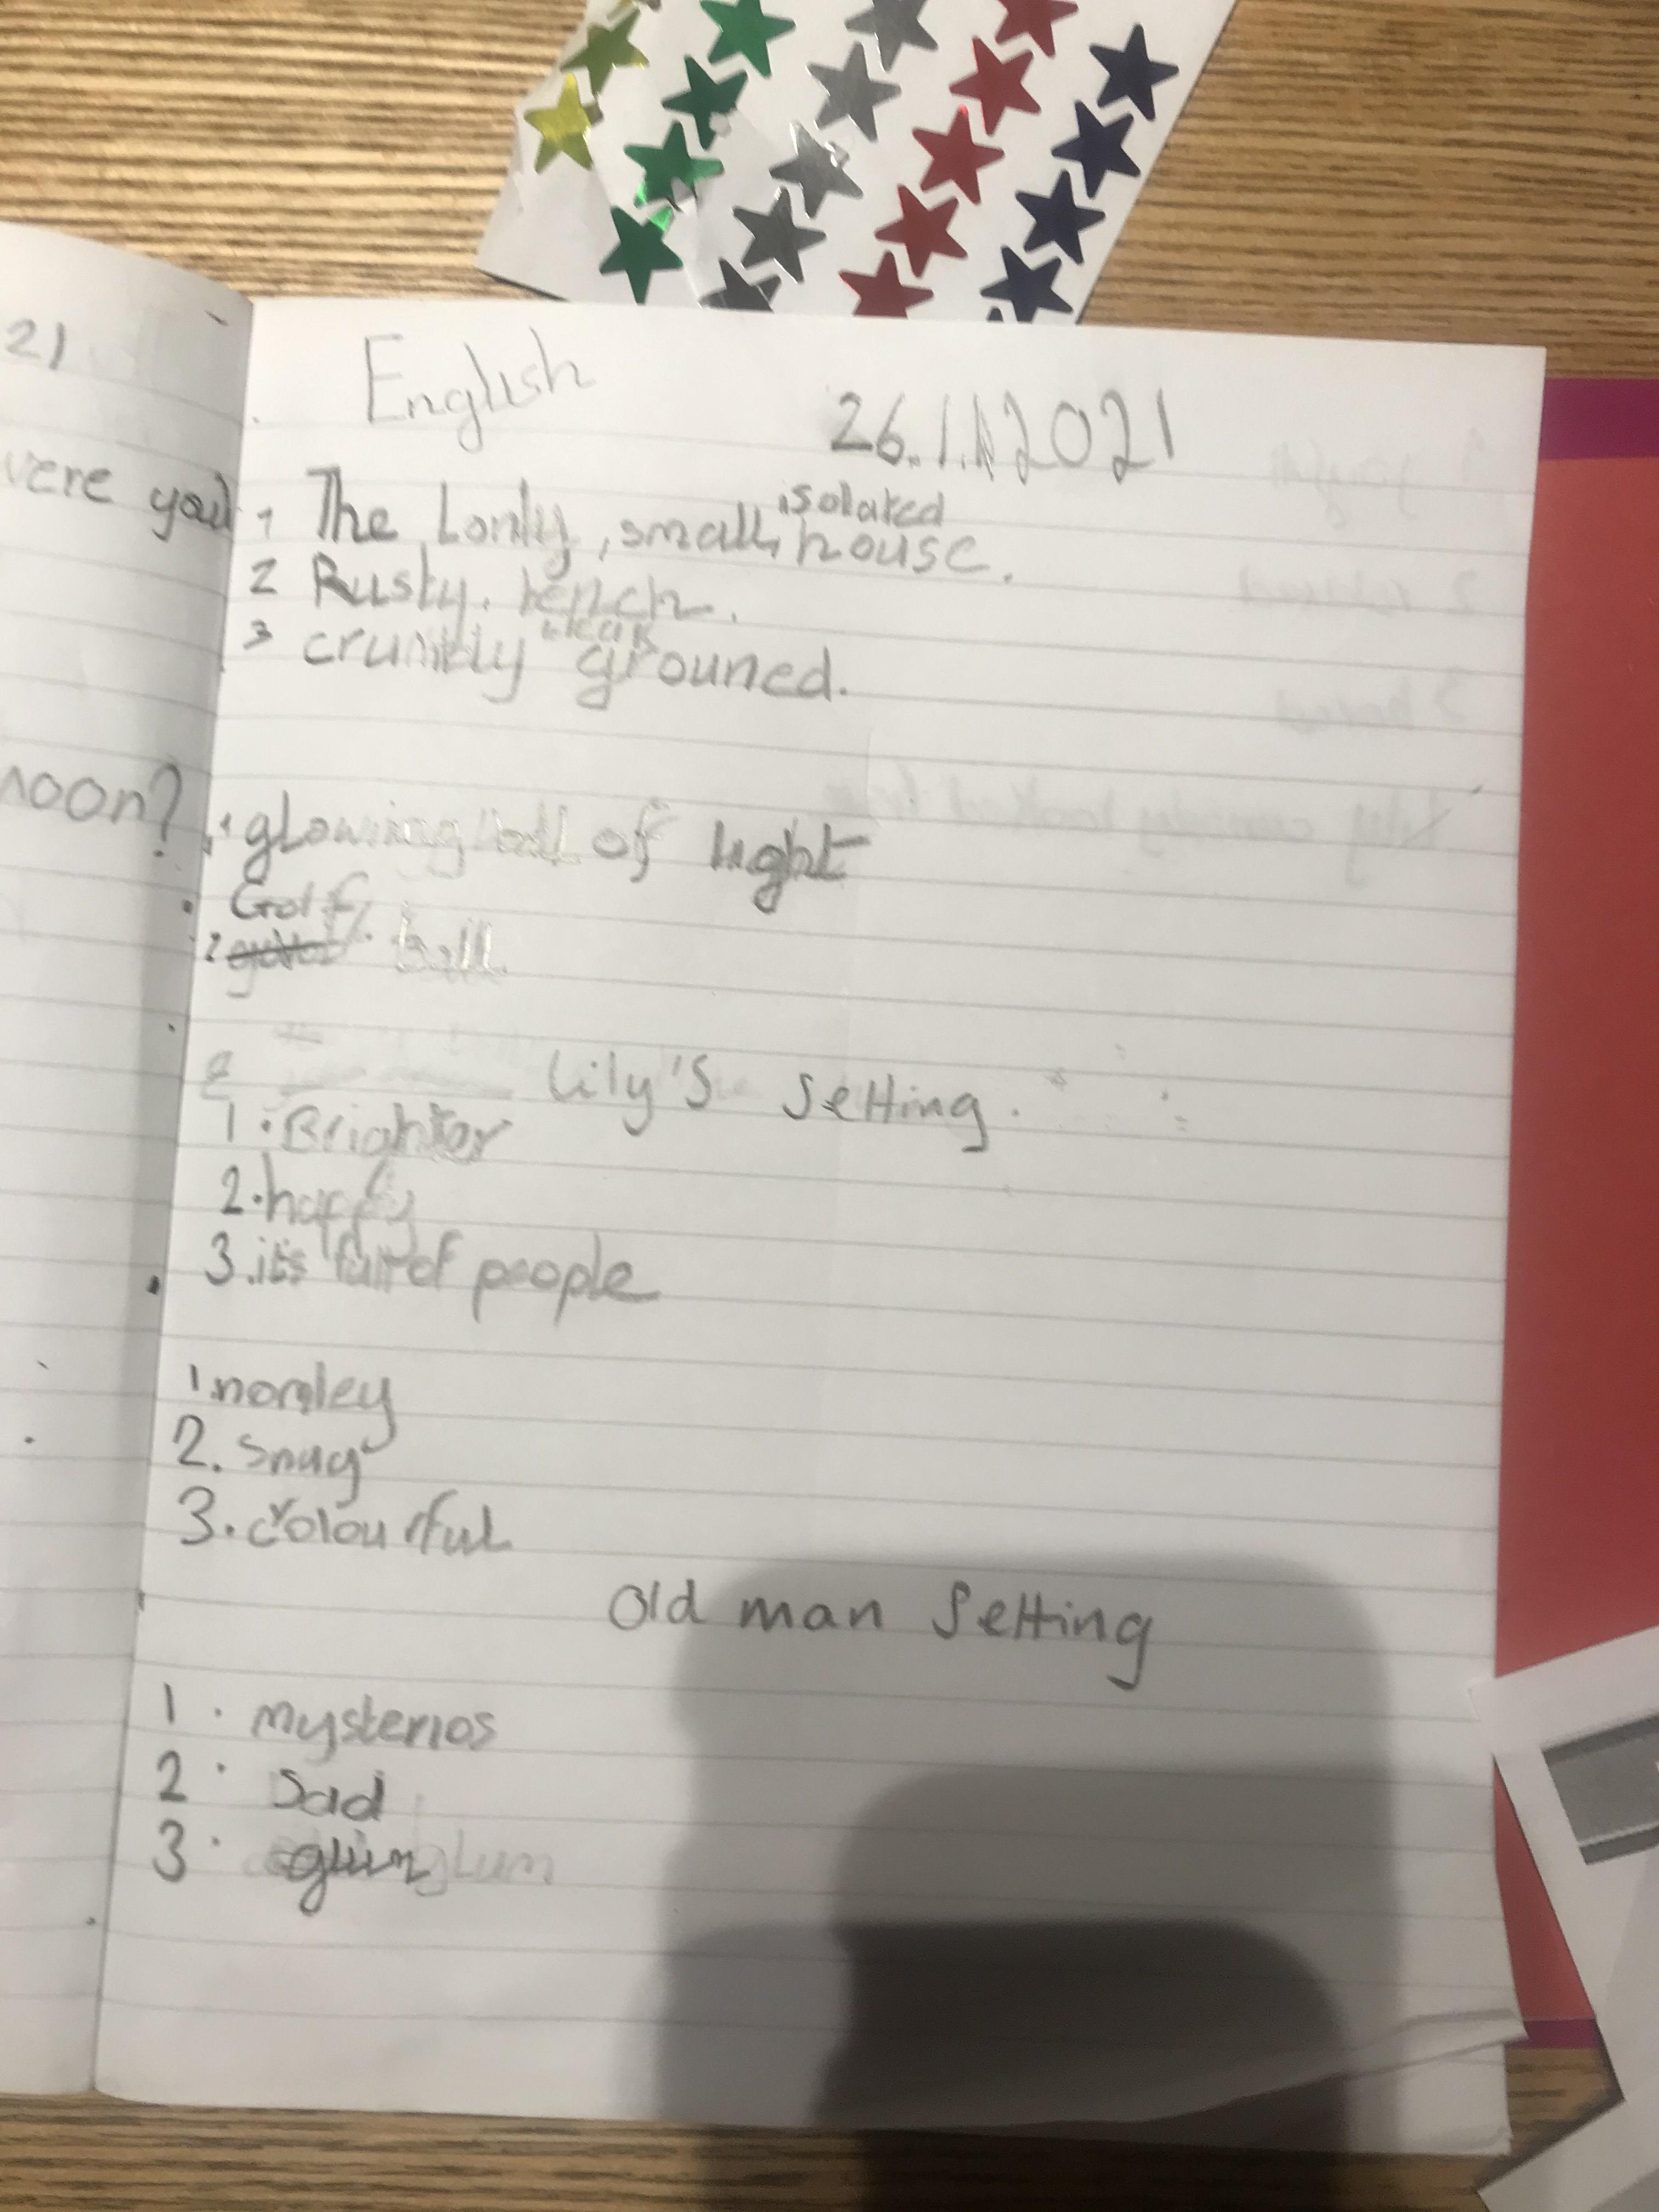 21
English
26.1.2021
were you
1 The Lonly, small, isolated house.
2 Rusty. bench.
3 crumbly grouned.
moon?
1 glowing ball of light
Golf
2 ball
Lily's Setting.
1. Brighter
2. happy
3. its full of people
1.
2. Snug
3. colourful
Old man Setting
1. mysterios
2. Sad
3. glum